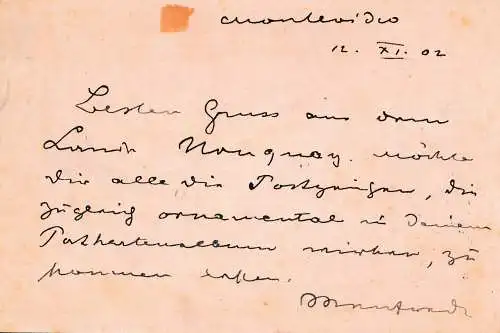 Montevideo
12. XI. 02
Besten Gruss aus dem
Lande Uruguay. Möchte
Dir alle die, die
ornamental in Deinem
Postkartenalbum wirken, zu
kommen lassen.